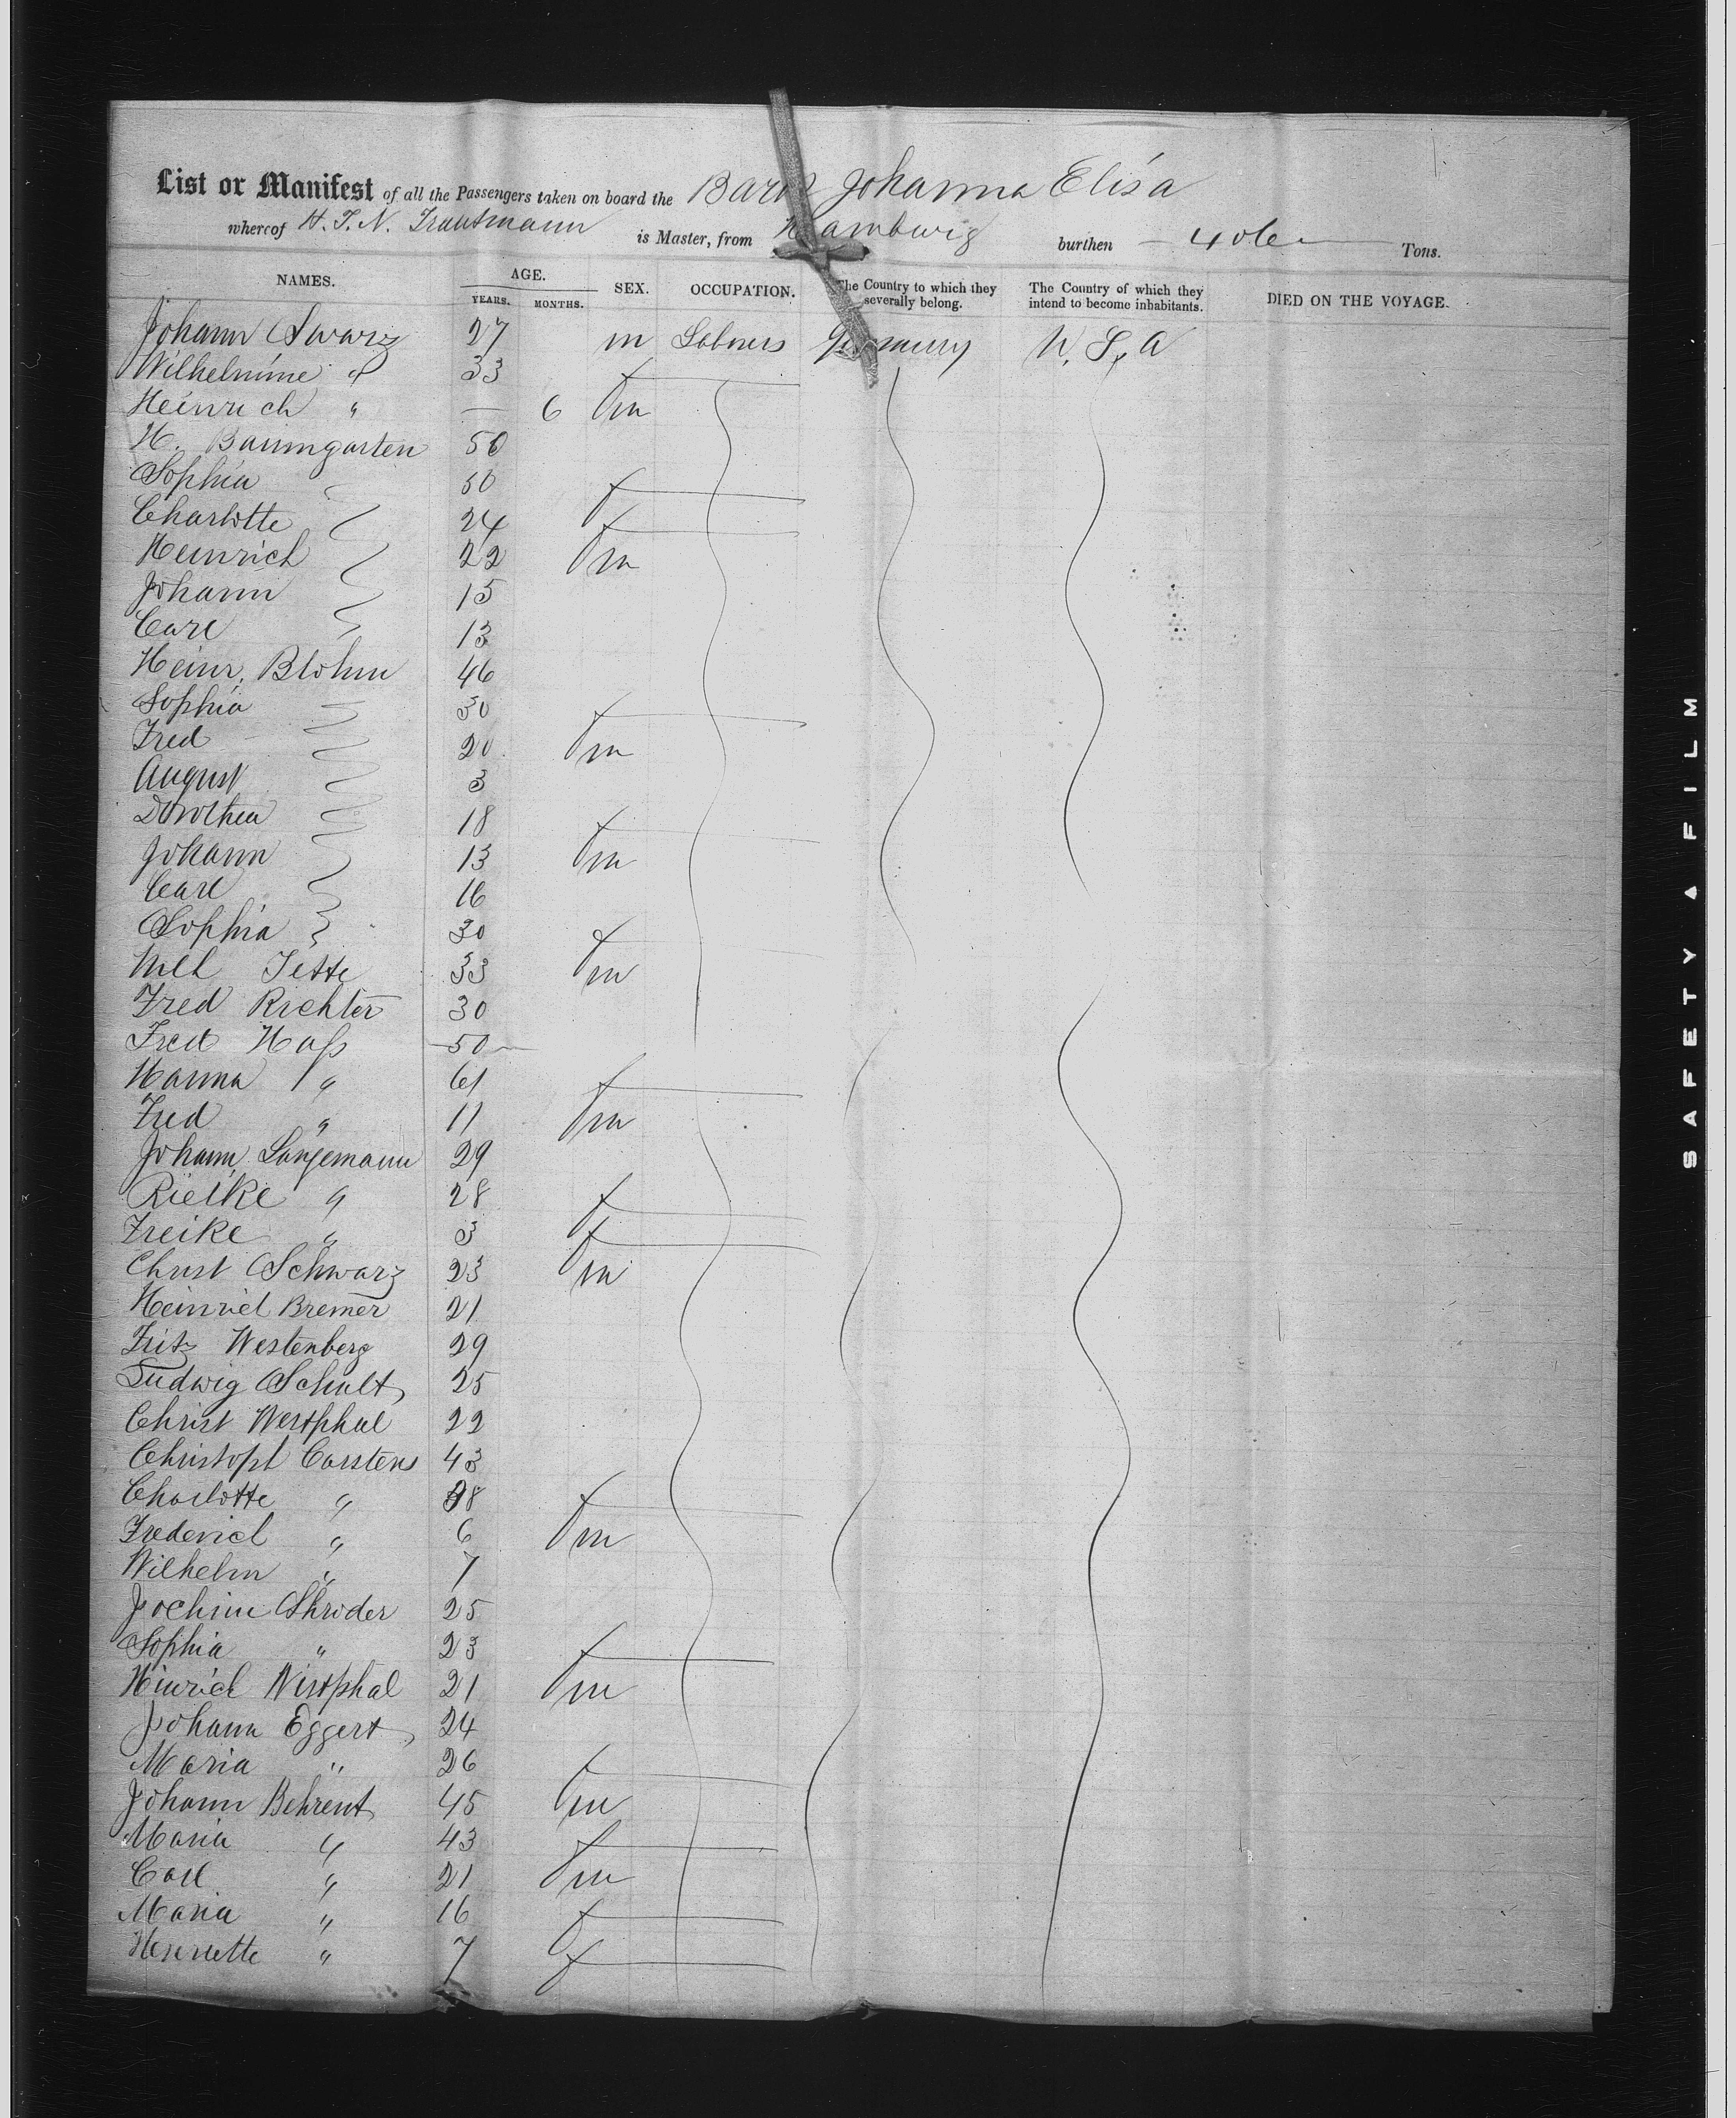 List or Manifest of all the Passengers taken on board the Bark Johanna Elisa
whereof H. T. N. Trautmann is Master, from Hamburg burthen Tons.
NAMES. AGE. SEX. OCCUPATION. The Country to which they severally belong. The Country of which they intend to become inhabitants. DIED ON THE VOYAGE.
YEARS. MONTHS.
Johann Swarz 27 m Germany U. S. A
Wilhelmine " 33 f
Heinrich " — 6 m
H. Baumgarten 50
Sophia 50 f
Charlotte 24 f
Heinrich 22 m
Johann 15
Carl 13
Heinr. Blohm 46
Sophia 30 f
Fred 20 m
August 3
Dorothea 18 f
Johann 13 m
Carl 16
Sophia 30 f
33 m
Fred Richter 30
Fred Haß 50
Hanna " 61 f
Fred " 11 m
Johann Langemann 29
Rieike " 28 f
Freike " 3 f
Christ Schwarz 23 m
Heinrich Bremer 21
Fritz Westenberg 29
Ludwig Schult 25
Christ Westphal 22
Christoph Carstens 43
Charlotte " 38 f
Frederich " 6 m
Wilhelm " 7
Jochim Shroder 25
Sophia " 23 f
Hinrich Westphal 21 m
Johann Eggert 24
Maria " 26 f
Johann Behrent 45 m
Maria " 43 f
Carl " 21 m
Maria " 16 f
Henriette " 7 f
SAFETY A FILM